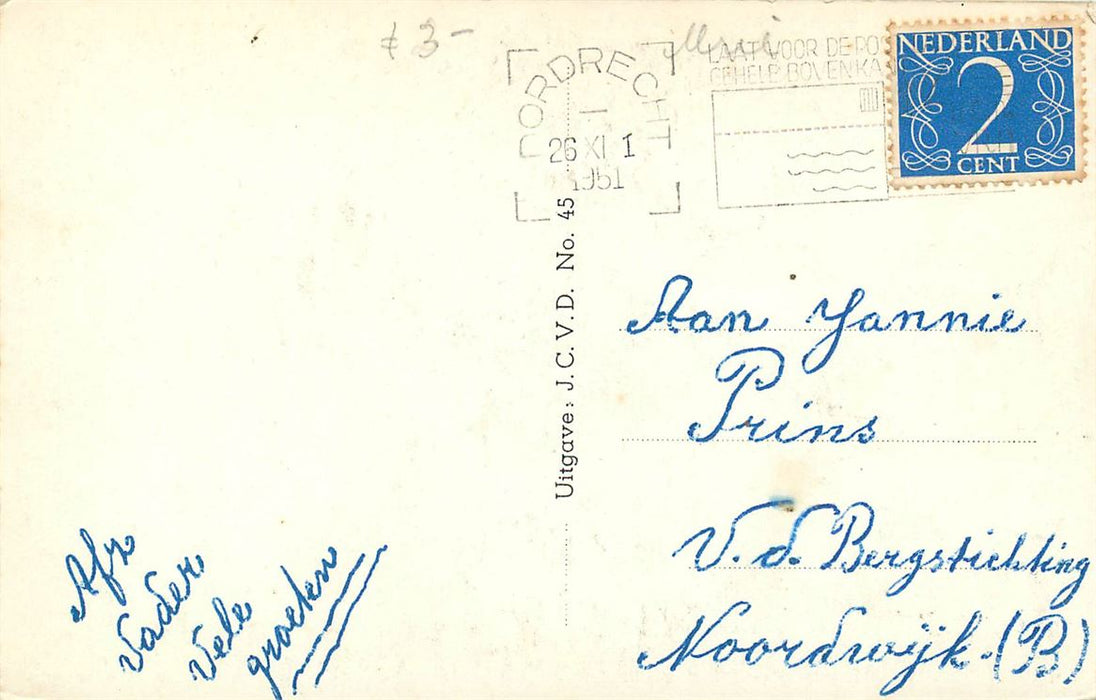 € 3-
DORDRECHT
26 XI 1
1951
LAAT VOOR DE PO
GEHELE BOVENKA
NEDERLAND
2
CENT
Uitgave: J. C. V. D. No. 45
Aan Jannie
Prins
V. d. Bergstichting
Noordwijk-(B)
Afz
Vader
Vele
groeten